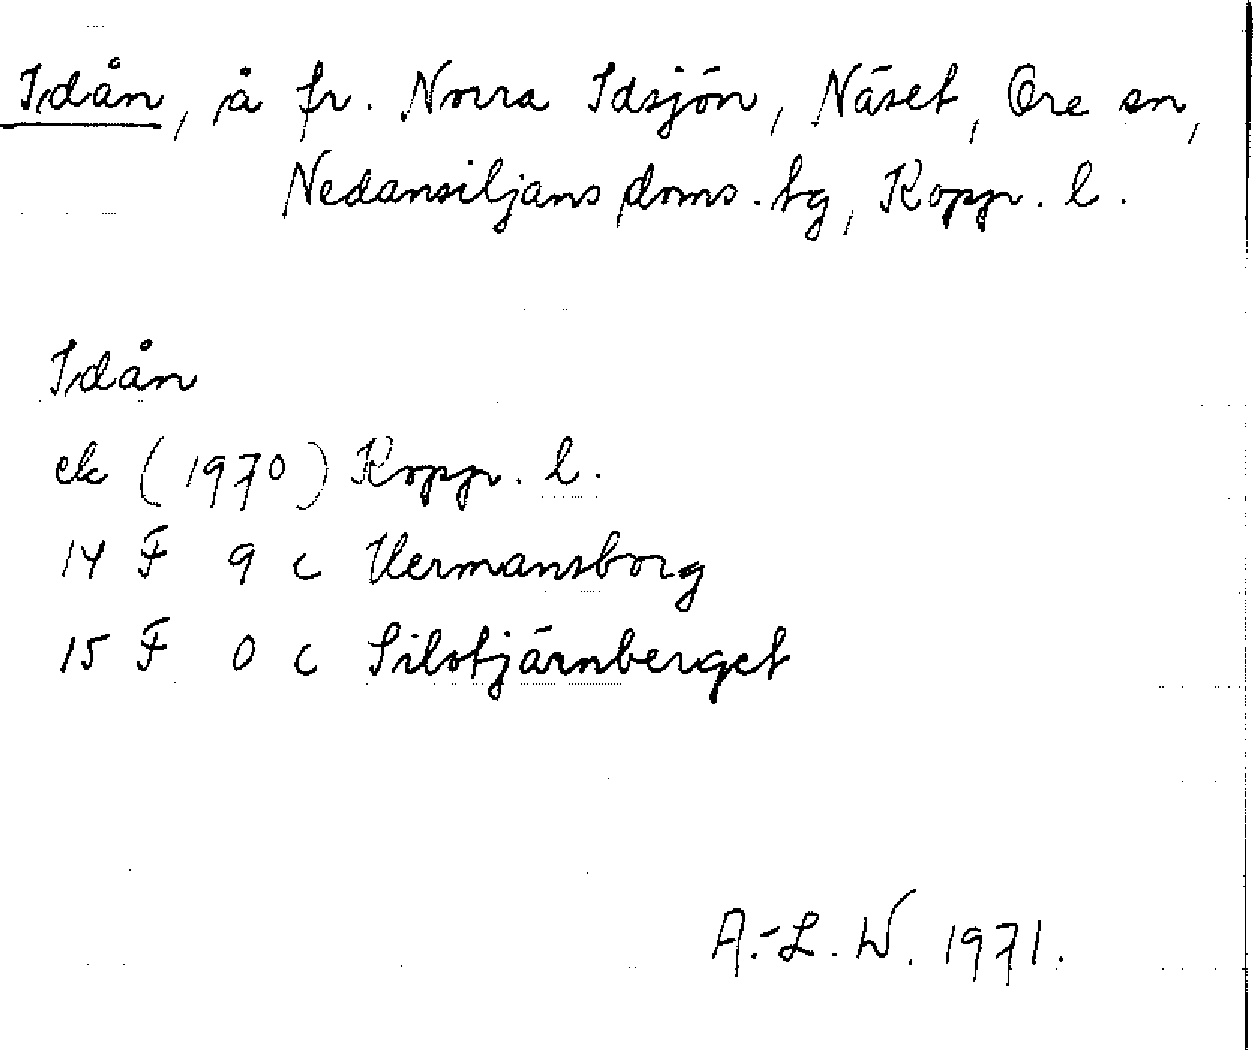 Idån, å fr. Norra Idsjön, Näset, Ore sn,
Nedansiljans doms. tg, Kopp. l.
Idån
ek (1970) Kopp. l.
14 F 9 c Hermansborg
15 F 0 c Silotjärnberget
A.-L. W. 1971.